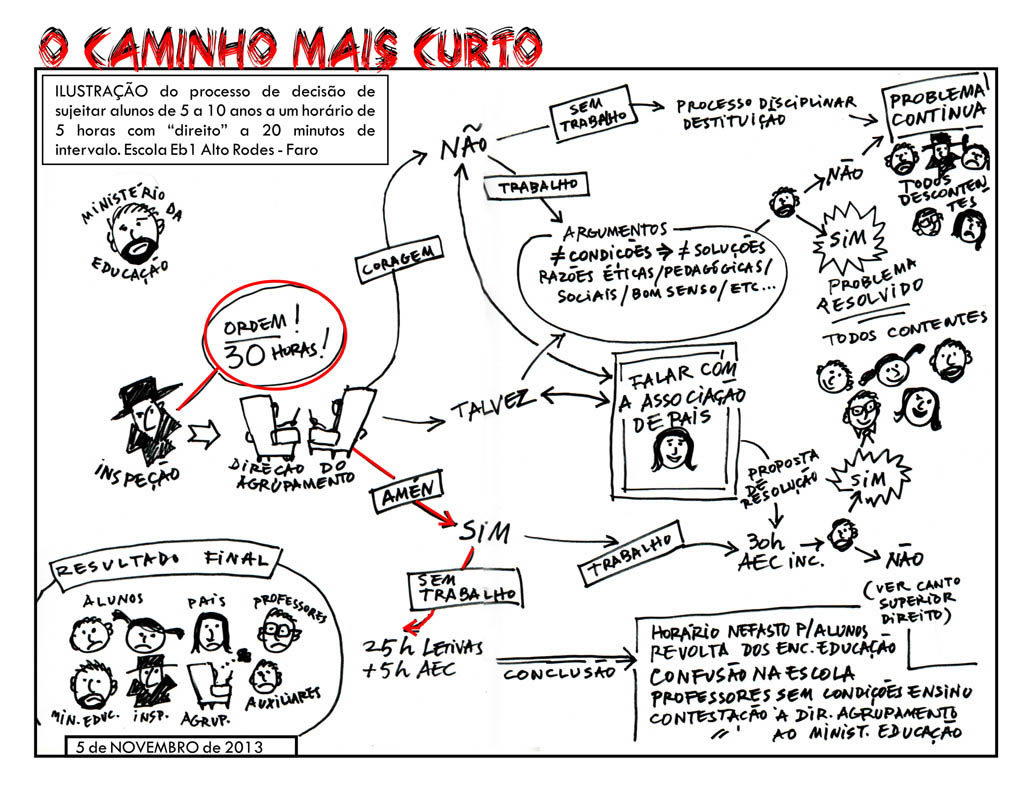 O CAMINHO MAIS CURTO
ILUSTRAÇÃO do processo de decisão de
sujeitar alunos de 5 a 10 anos a um horário de
5 horas com “direito” a 20 minutos de
intervalo. Escola Eb1 Alto Rodes - Faro
MINISTÉRIO DA
EDUCAÇÃO
ORDEM!
30 HORAS!
INSPEÇÃO
DIREÇÃO DO
AGRUPAMENTO
CORAGEM
NÃO
SEM
TRABALHO
PROCESSO DISCIPLINAR
DESTITUIÇÃO
PROBLEMA
CONTINUA
TODOS
DESCONTEN
TES
TRABALHO
ARGUMENTOS
≠ CONDIÇÕES ⇒ ≠ SOLUÇÕES
RAZÕES ÉTICAS/PEDAGÓGICAS/
SOCIAIS/BOM SENSO/ETC...
NÃO
SIM
PROBLEMA
RESOLVIDO
TODOS CONTENTES
TALVEZ
FALAR COM
A ASSOCIAÇÃO
DE PAIS
PROPOSTA
DE
RESOLUÇÃO
AMÉN
SIM
TRABALHO
30h
AEC INC.
SIM
NÃO
(VER CANTO
SUPERIOR
DIREITO)
SEM
TRABALHO
25h LETIVAS
+5h AEC
CONCLUSÃO
HORÁRIO NEFASTO P/ALUNOS
REVOLTA DOS ENC. EDUCAÇÃO
CONFUSÃO NA ESCOLA
PROFESSORES SEM CONDIÇÕES ENSINO
CONTESTAÇÃO À DIR. AGRUPAMENTO
〃 AO MINIST. EDUCAÇÃO
RESULTADO FINAL
ALUNOS
PAIS
PROFESSORES
MIN. EDUC.
INSP.
AGRUP.
AUXILIARES
5 de NOVEMBRO de 2013